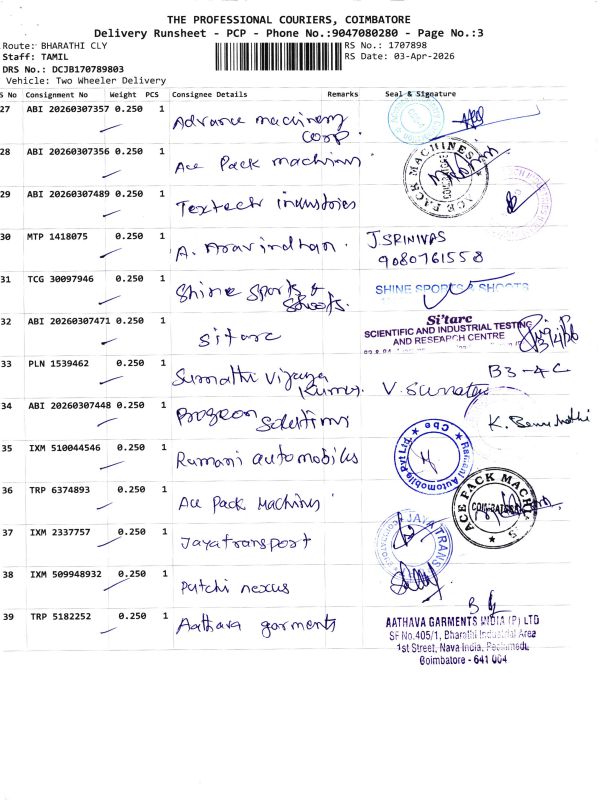 THE PROFESSIONAL COURIERS, COIMBATORE
Delivery Runsheet - PCP - Phone No.:9047080280 - Page No.:3
Route: BHARATHI CLY
RS No.: 1707898
Staff: TAMIL
RS Date: 03-Apr-2026
DRS No.: DCJB170789803
Vehicle: Two Wheeler Delivery
S No Consignment No Weight PCS Consignee Details Remarks Seal & Signature
27 ABI 20260307357 0.250 1 Advance machinery
corp.
28 ABI 20260307356 0.250 1 Ace Pack machines
ACE PACK MACHINES
29 ABI 20260307489 0.250 1 Textech industries
30 MTP 1418075 0.250 1 A. Aravindhan. J.SRINIVAS
9080761558
31 TCG 30097946 0.250 1 Shine sports &
Shoots. SHINE SPORTS & SHOOTS
32 ABI 20260307471 0.250 1 Sitarc
Si'tarc
SCIENTIFIC AND INDUSTRIAL TESTING
AND RESEARCH CENTRE
33 PLN 1539462 0.250 1 Sumathi Vijaya
Kumar. B3-4C
34 ABI 20260307448 0.250 1 Solutions
35 IXM 510044546 0.250 1 Ramani automobiles
Ramani Automobile Pvt Ltd. Cbe
36 TRP 6374893 0.250 1 Ace Pack Machines
ACE PACK MACHINES
COIMBATORE
37 IXM 2337757 0.250 1 Jayatransport
JAYA TRANS
38 IXM 509948932 0.250 1 Patchi nexus
39 TRP 5182252 0.250 1 Aathava garments
AATHAVA GARMENTS INDIA (P) LTD
SF No.405/1, Bharathi Industrial Area
1st Street, Nava India, Peelamedu
Coimbatore - 641 004